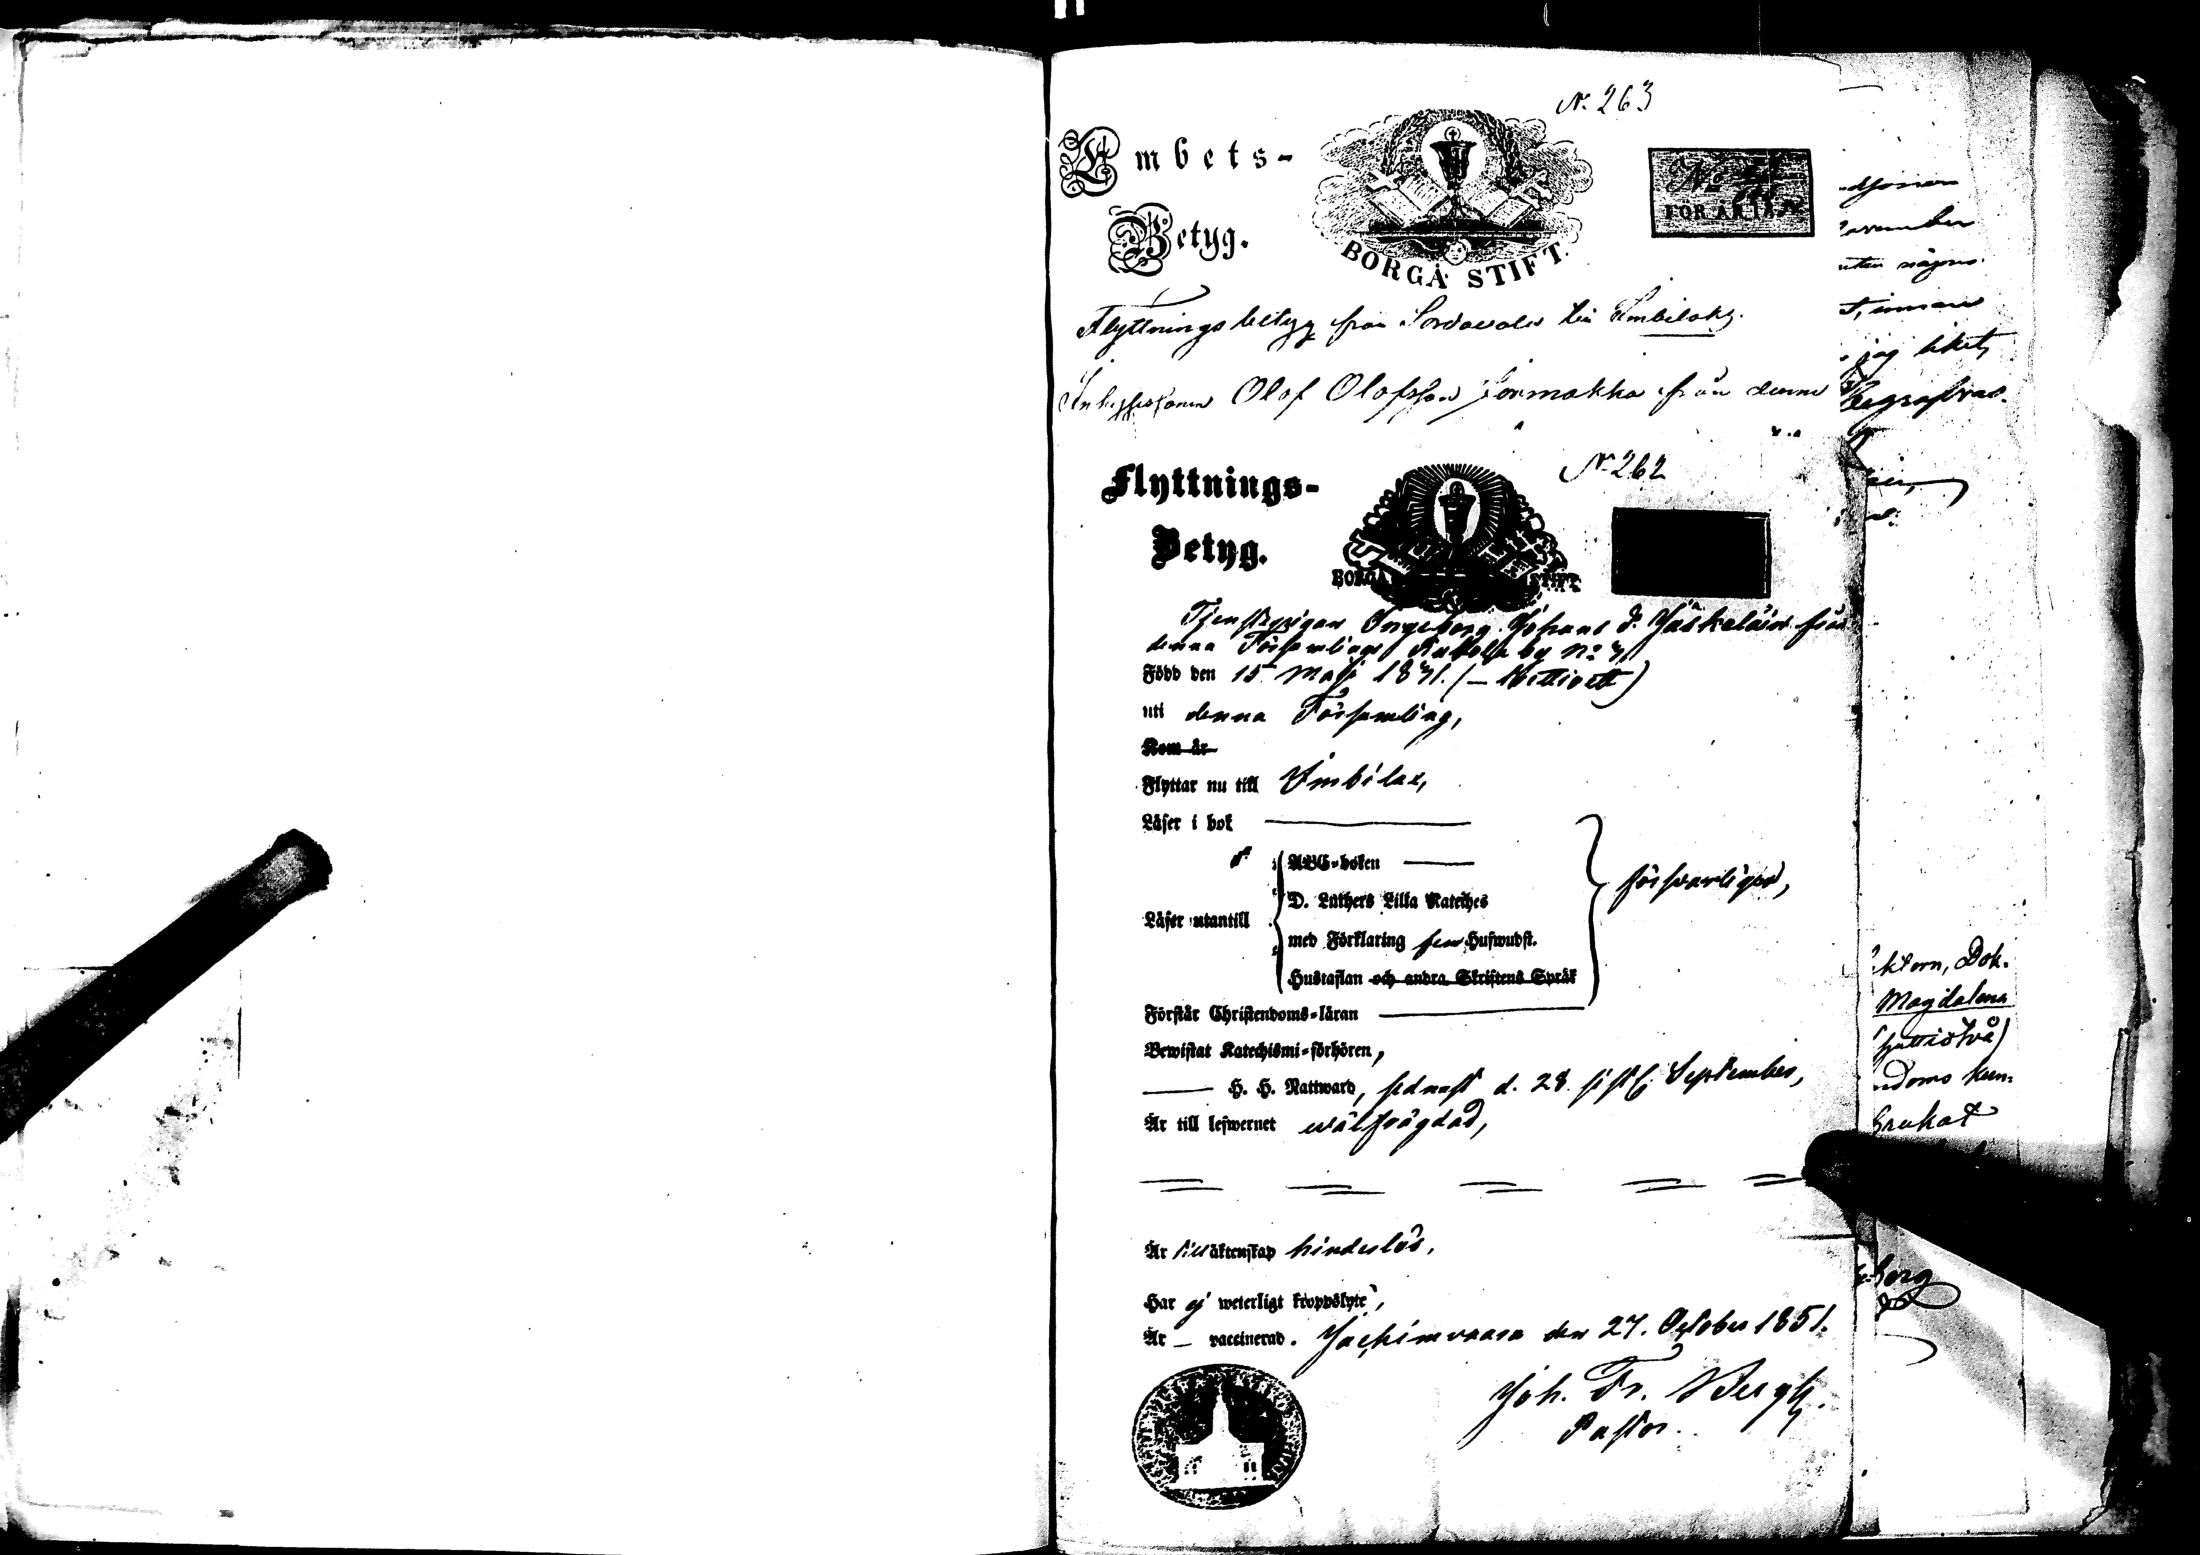 N. 263
Embets-
Betyg.
BORGÅ STIFT.
FÖR ÅR 18
Flyttningsbetyg från Sordavala till Imbilaks.
Inhysessonen Olof Olofsson Sormakka från denna
N. 262
Flyttnings-
Betyg.
BORGÅ STIFT.
Tjenstepigan Ingeborg Johans d. Jäskeläin från
denna Församlings by No 7,
Född den 15 Maji 1831. (– trettioett)
uti denna Församling,
Kom år
Flyttar nu till Imbilax,
Läser i bok
ABC-boken
D. Luthers Lilla Kateches
Läser utantill
med Förklaring samt Huswudst.
Hustaflan och andra Skriftens Språk
försvarligen,
Förstår Christendoms-läran
Bewistat Katechismi-förhören,
H. H. Nattward, sednast d. 28 sistl. September,
Är till lefwernet wälfrägdad,
Är till äktenskap hinderlös,
Har ej weterligt kroppslyte,
Är – vaccinerad. Jackimvaara den 27. October 1851.
Joh. Fr. Bergh.
Pastor.
November
utan någons
t, innan
jag liket,
Begrafvas.
ktorn, Dok.
Magdalena
ndoms kun-
Brukat
berg